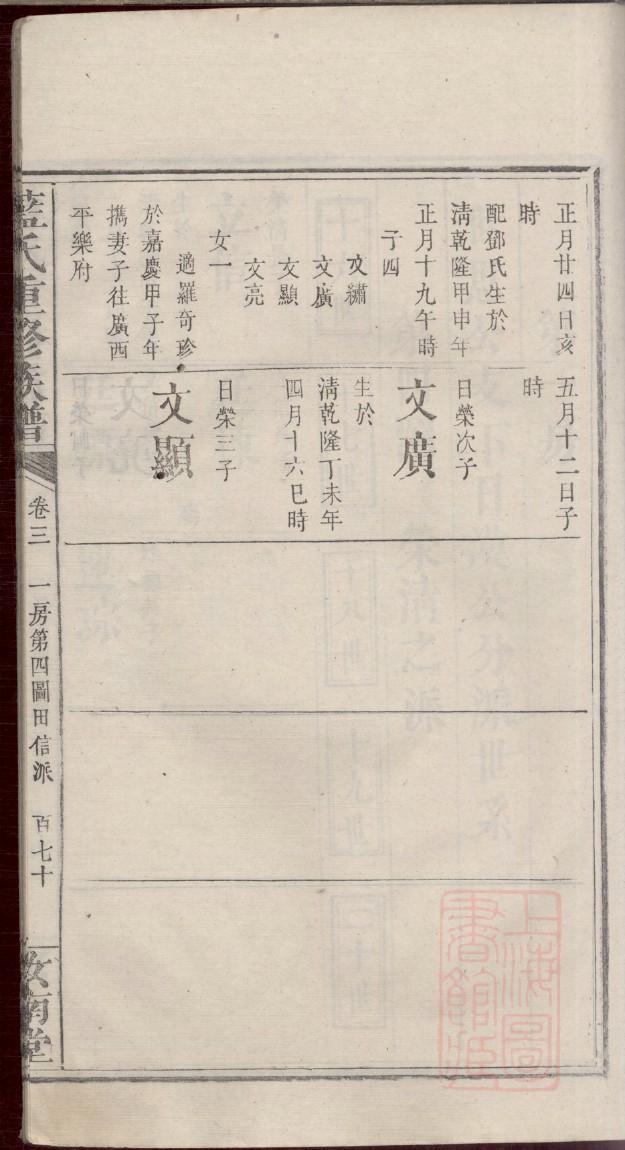 正月廿四日亥
時
配鄧氏生於
清乾隆甲申年
正月十九午時
子四
文繡
文廣
文顯
文亮
女一
適羅奇珍
於嘉慶甲子年
攜妻子往廣西
平樂府
五月十二日子
時
日榮次子
文廣
生於
清乾隆丁未年
四月十六巳時
日榮三子
文顯
藍氏重修族譜
卷三
一房第四圖田信派
百七十
汝南堂
上海圖
書館藏